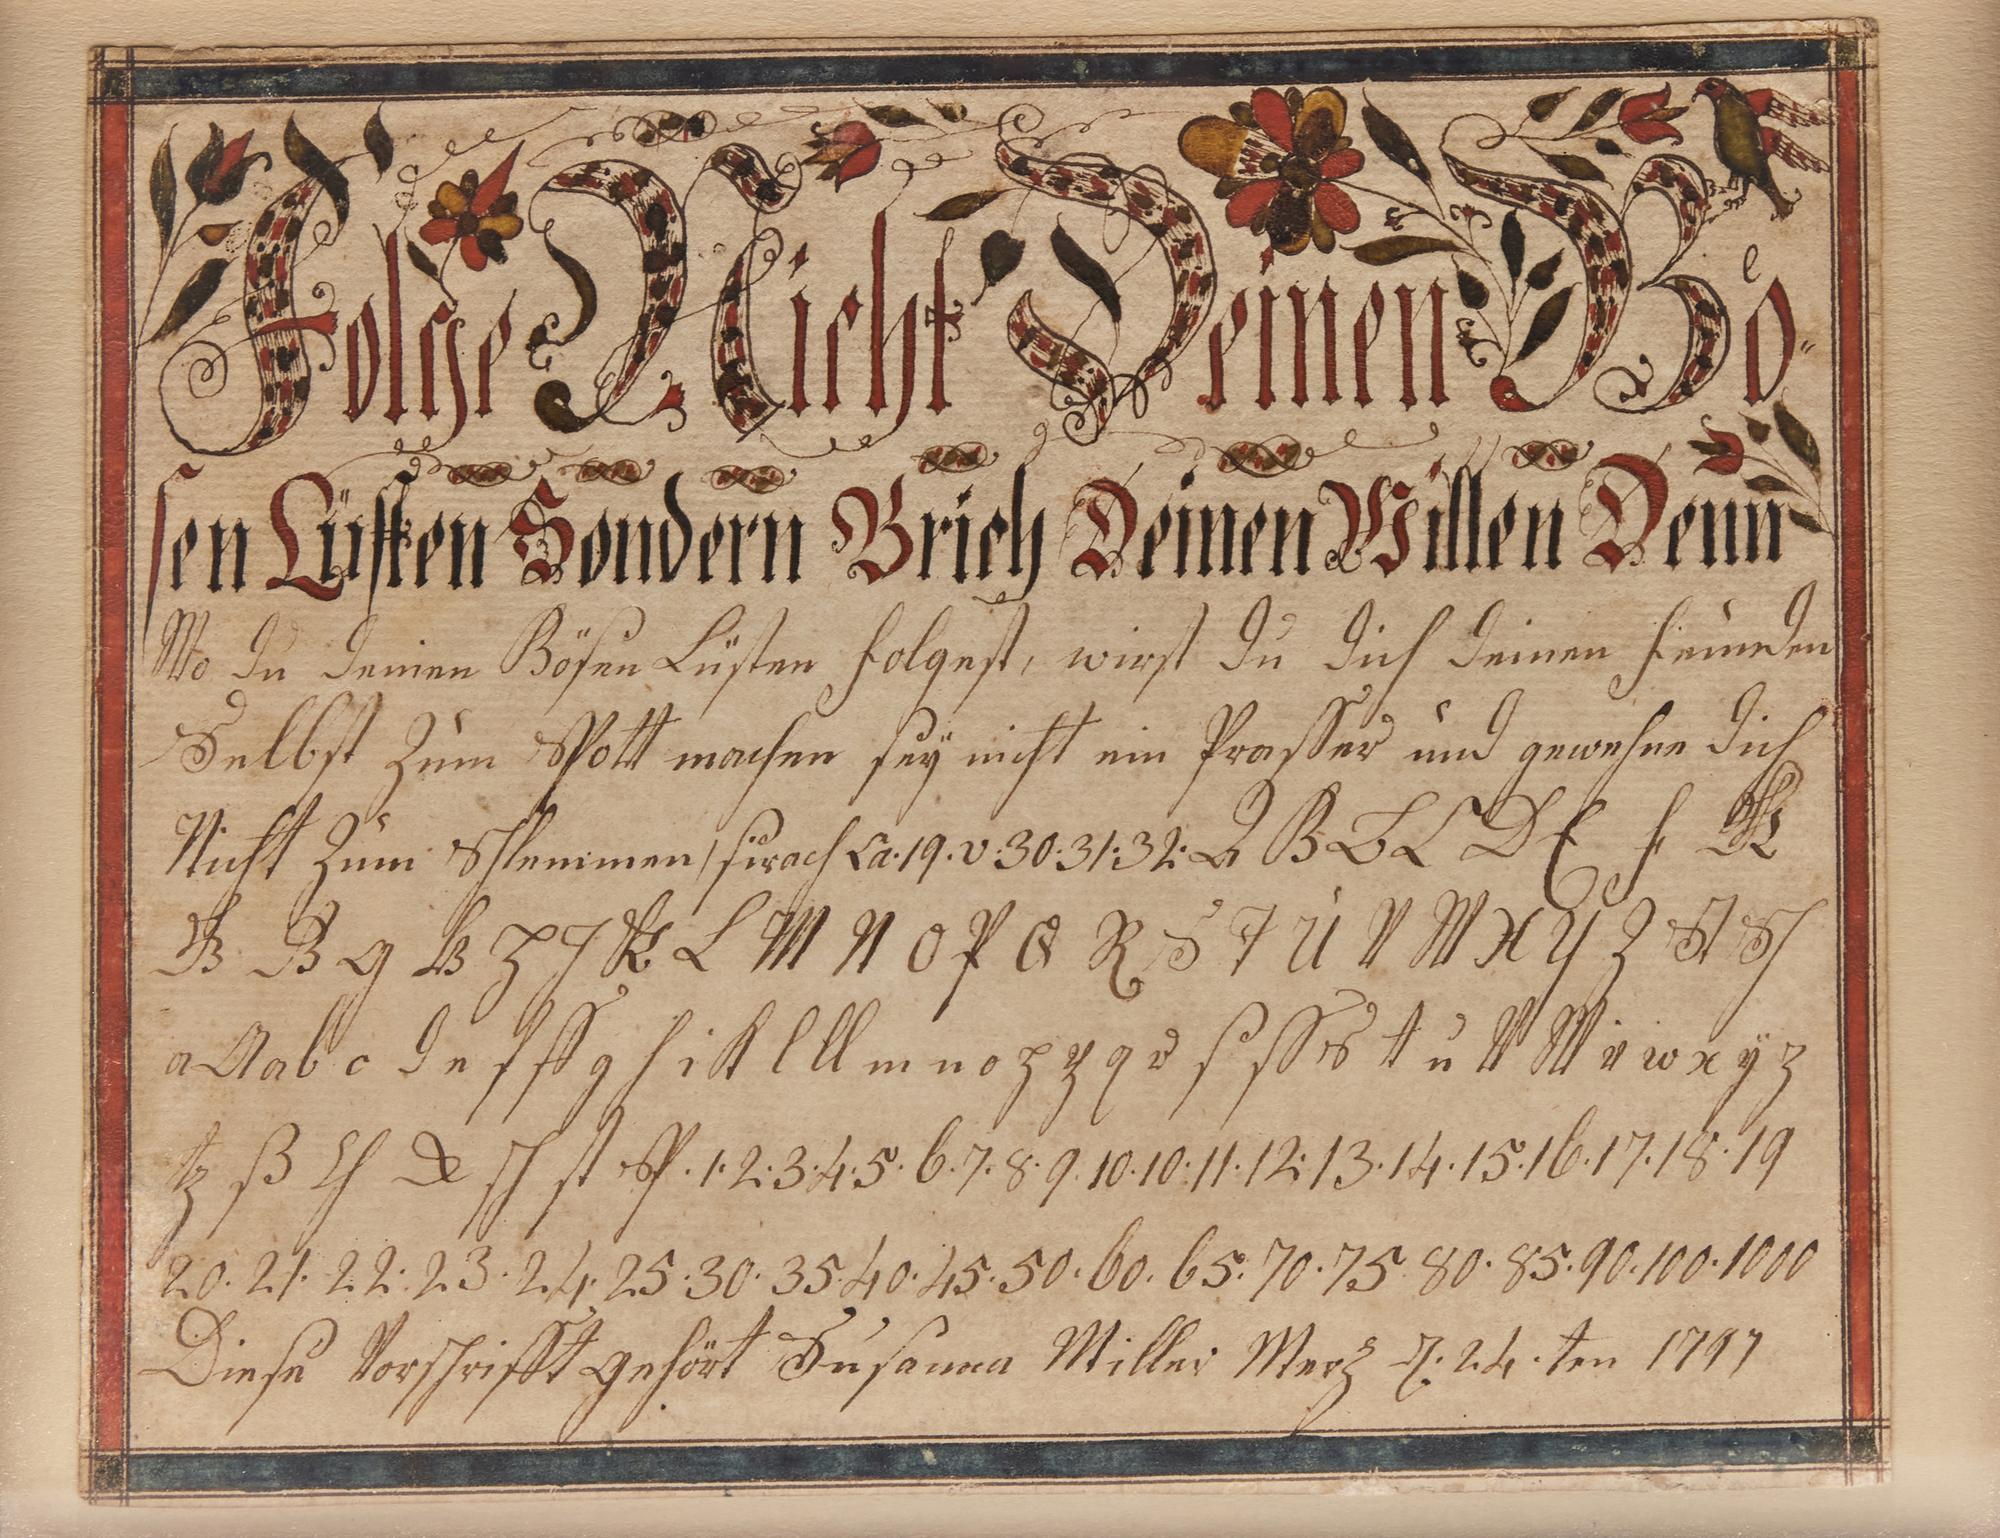 Folge Nicht Deinen Bö=
sen Lüsten Sondern Brich Deinen Willen Denn
Wo du deinen Bösen Lüsten folgest, wirst du dich deinen feinden
Selbst zum Spott machen sey nicht ein Prasser und gewehne dich
Nicht zum Schlemmen, sirach Ca. 19. v. 30. 31. 32. A B B C D E f
g H J K L M N O P Q R S T U V W X Y Z St Sch
a a a b c d e f ff g h i k l ll m n o p p q r s ss s t u v w v w x ÿ z
tz ß ch & sch st sp. 1. 2. 3. 4. 5. 6. 7. 8. 9. 10. 10. 11. 12. 13. 14. 15. 16. 17. 18. 19
20. 21. 22. 23. 24. 25. 30. 35. 40. 45. 50. 60. 65. 70. 75. 80. 85. 90. 100. 1000
Diese Vorschrifft gehört Susanna Miller Merz d. 24. ten 1797